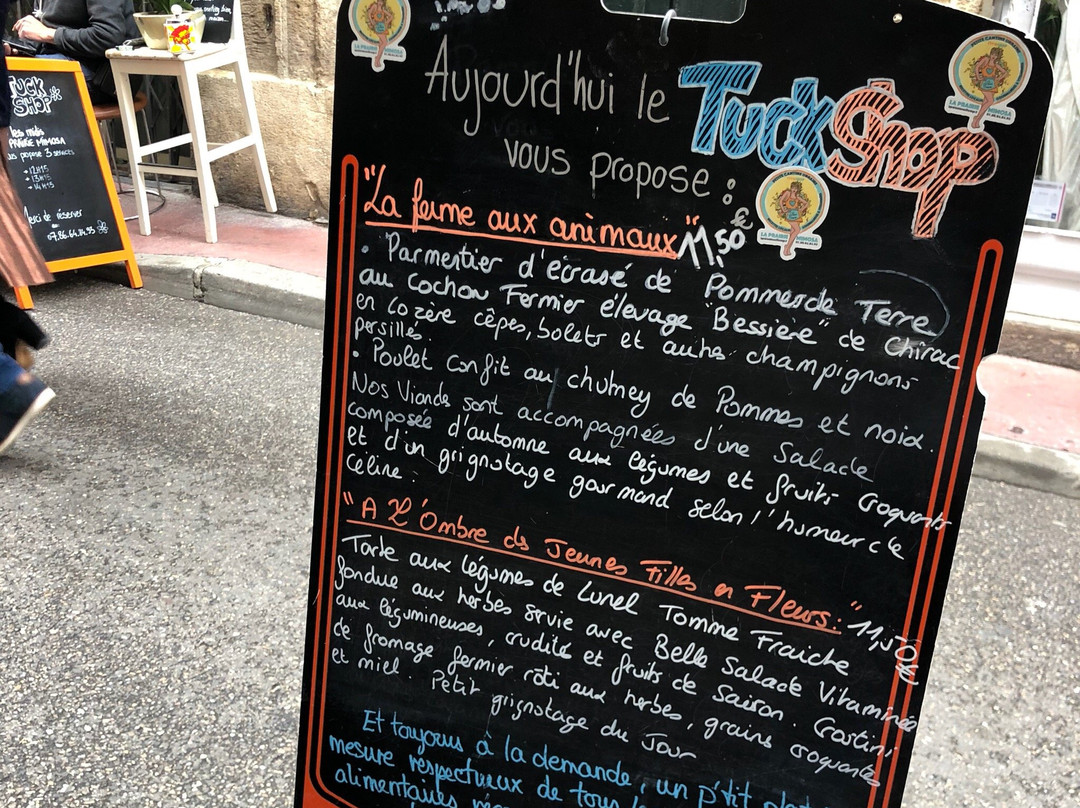 Aujourd'hui le Tuck Shop
vous propose :
"La ferme aux animaux" 11,50€
• Parmentier d'écrasé de Pommes de Terre
au Cochon Fermier élevage "Bessière" de Chirac
en Lozère cêpes, bolets et autres champignons
persillés.
• Poulet confit au chutney de Pommes et noix.
Nos Viandes sont accompagnées d'une Salade
composée d'automne aux légumes et fruits croquants
et d'un grignotage gourmand selon l'humeur de
Céline.
"A L'Ombre des Jeunes Filles en Fleurs:" 11,50€
Tarte aux légumes de Lunel Tomme Fraiche
fondue aux herbes srvie avec Belle Salade Vitaminée
aux légumineuses, crudités et fruits de Saison. Crostini
de fromage fermier rôti aux herbes, grains croquantes
et miel. Petit
grignotage du Jour
Et toujours à la demande, un p'tit plat
mesure respectueux de tous
alimentaires
TUCK
SHOP
Les midis
PRAIRIE MIMOSA
vous propose 3 services
→ 12H15
→ 13H15
→ 14H15
Merci de réserver
LA PRAIRIE MIMOSA
LA PRAIRIE MIMOSA
LA PRAIRIE MIMOSA